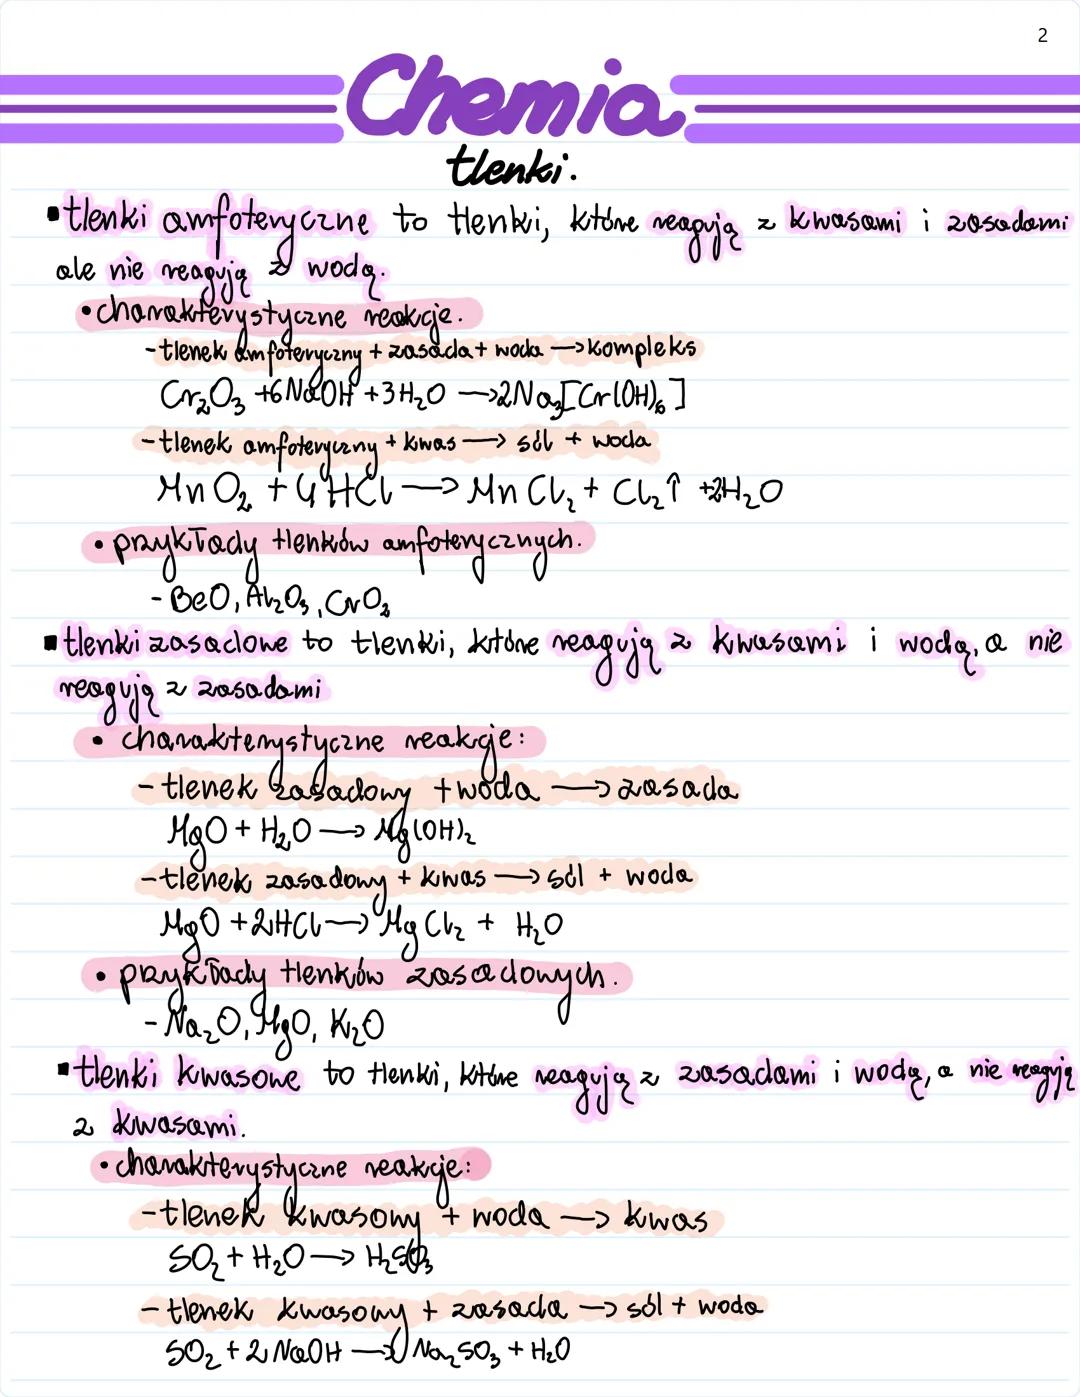 2
Chemia
tlenki:
▪tlenki amfoteryczne to tlenki, które reagują z kwasami i zasadami
ale nie reagują z wodą.
•charakterystyczne reakcje:
-tlenek amfoteryczny + zasada + woda →kompleks
Cr₂O₃ +6NaOH +3H₂O →2Na₃[Cr(OH)₆]
-tlenek amfoteryczny + kwas → sól + woda
MnO₂ + 4HCl → MnCl₂ + Cl₂↑ +2H₂O
• przykłady tlenków amfoterycznych:
- BeO, Al₂O₃, CrO₂
▪tlenki zasadowe to tlenki, które reagują z kwasami i wodą, a nie
reagują z zasadami
• charakterystyczne reakcje:
- tlenek zasadowy + woda → zasada
MgO + H₂O → Mg(OH)₂
-tlenek zasadowy + kwas → sól + woda
MgO +2HCl → MgCl₂ + H₂O
• przykłady tlenków zasadowych:
- Na₂O, MgO, K₂O
▪tlenki kwasowe to tlenki, które reagują z zasadami i wodą, a nie reagują
z kwasami.
•charakterystyczne reakcje:
-tlenek kwasowy + woda → kwas
SO₂ + H₂O → H₂SO₃
- tlenek kwasowy + zasada → sól + woda
SO₂ + 2NaOH → Na₂SO₃ + H₂O